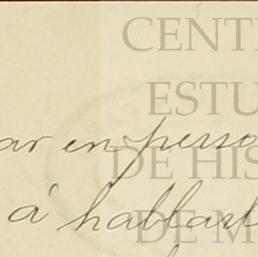 CENT
ESTU
ar en perso
DE HIS
á hablarl
DE M